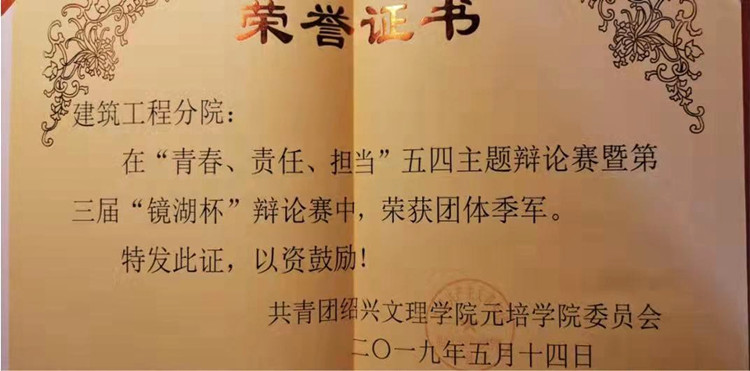 荣誉证书
建筑工程分院：
在“青春、责任、担当”五四主题辩论赛暨第
三届“镜湖杯”辩论赛中，荣获团体季军。
特发此证，以资鼓励！
共青团绍兴文理学院元培学院委员会
二〇一九年五月十四日